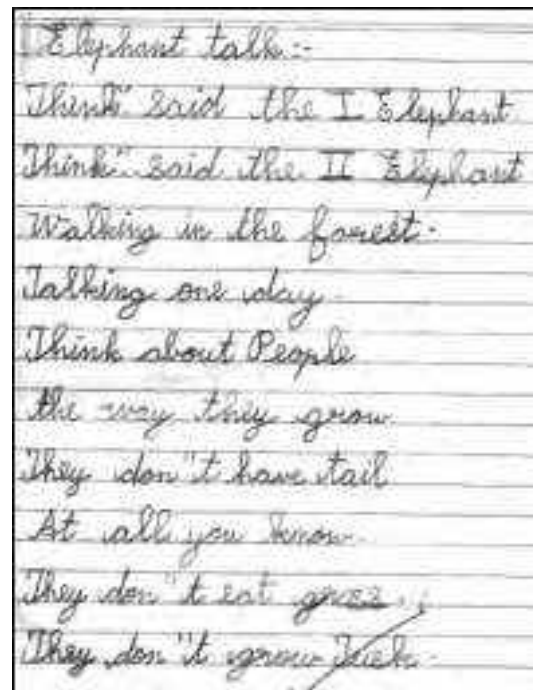 Elephant talk:-
Think" said the I Elephant
Think" said the II Elephant
Walking in the forest.
Talking one day
Think about People
the way they grow
They don"t have tail
At all you know.
They don"t eat gras..
They don"t grow Tusk.